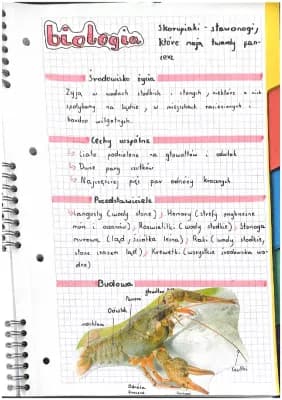 biologia
Skorupiaki - stawonogi,
które mają twardy pan-
cerz
Środowisko życia
Żyją w wodach słodkich i słonych, niektóre z nich
spotykamy na lądzie, w miejscach zacienionych i
bardzo wilgotnych.
Cechy wspólne
Ciało podzielone na głowotłów i odwłok
Dwie pary czułków
Najczęściej pięć par odnóży krocznych
Przedstawiciele
Langusty (wody słone), Homary (strefy przybrzeżne
mórz i oceanów), Rozwielitki (wody słodkie), Stonoga
murowa (ląd, ściółka leśna), Raki (wody słodkie,
słone czasem ląd), Krewetki (wszystkie środowiska wo-
dne)
Budowa
Odwłok
Czułki
Odnóża
kroczne